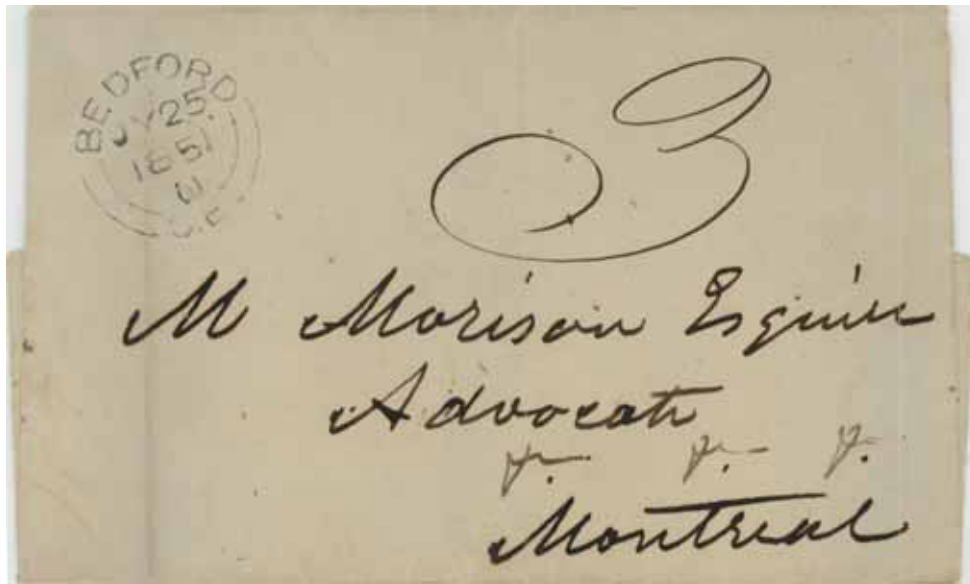 BEDFORD
JY 25
1851
C.E
3
M Morison Esquire
Advocate
Montreal